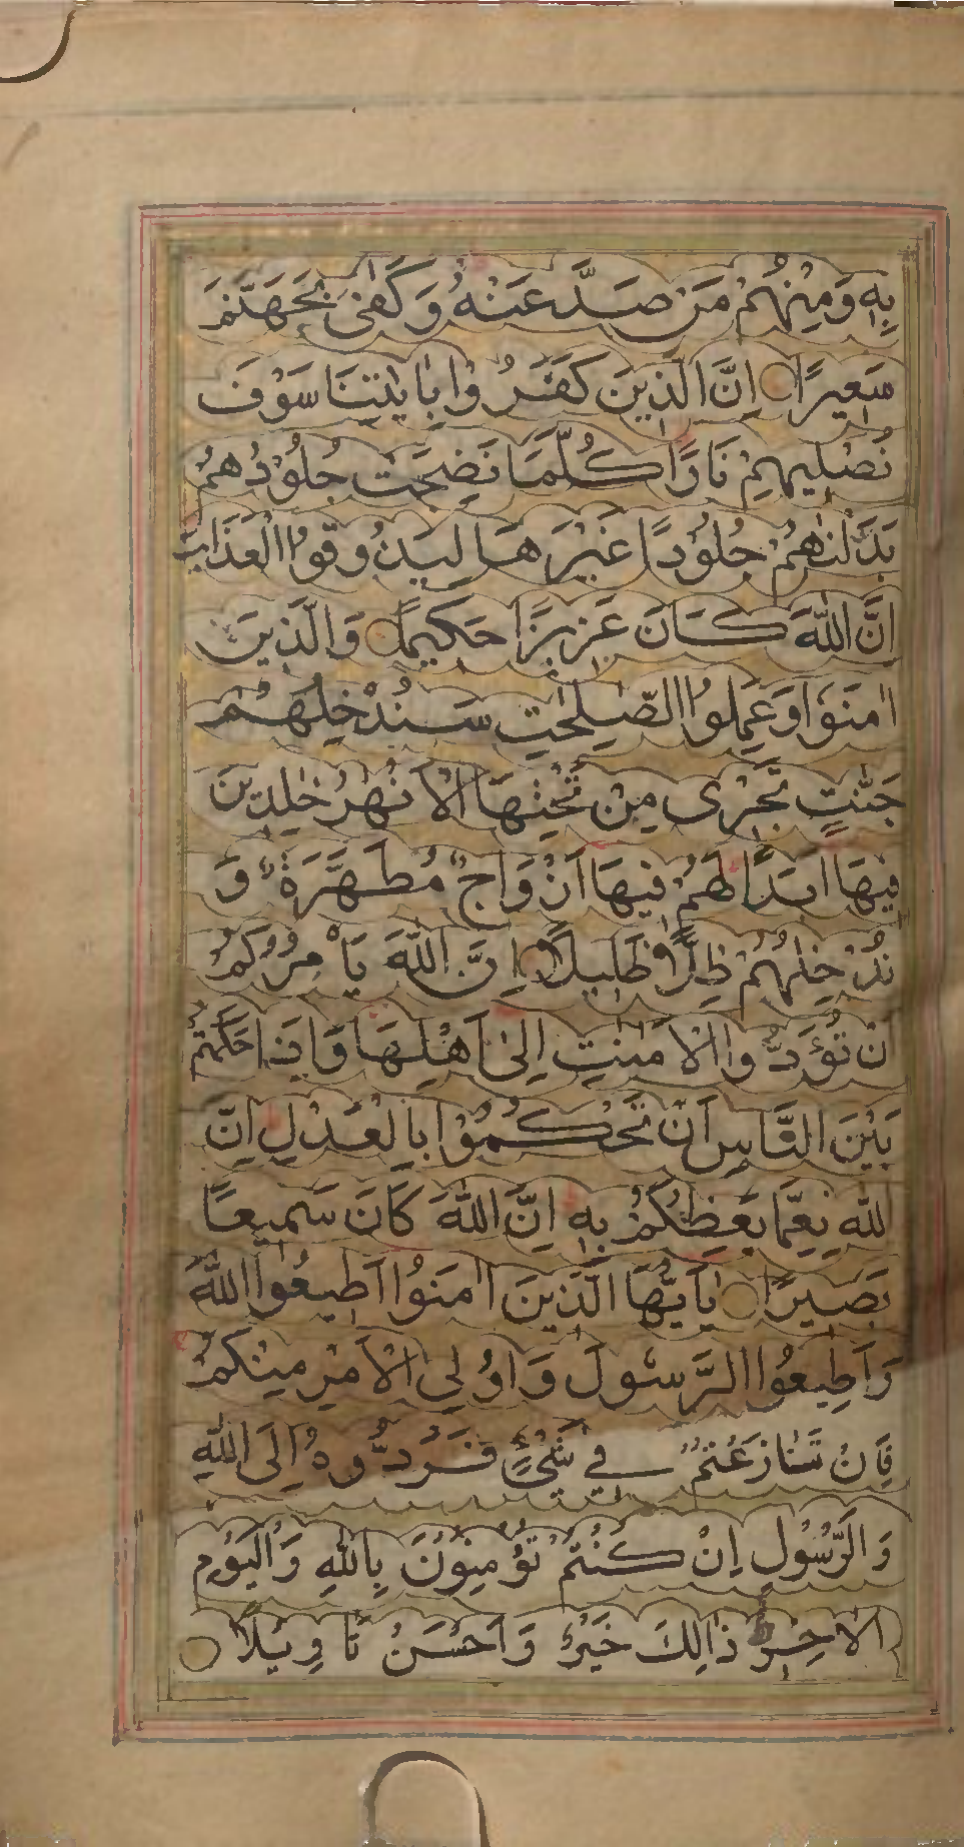 بِهٖ وَمِنْهُمْ مَنْ صَدَّ عَنْهُ وَكَفٰى بِجَهَنَّمَ
سَعِيرًا اِنَّ الَّذِينَ كَفَرُوْا بِاٰيٰتِنَا سَوْفَ
نُصْلِيهِمْ نَارًا كُلَّمَا نَضِجَتْ جُلُوْدُهُمْ
بَدَّلْنٰهُمْ جُلُوْدًا غَيْرَهَا لِيَذُوقُوا الْعَذَابَ
اِنَّ اللّٰهَ كَانَ عَزِيزًا حَكِيمًا وَالَّذِينَ
اٰمَنُوْا وَعَمِلُوا الصّٰلِحٰتِ سَنُدْخِلُهُمْ
جَنّٰتٍ تَجْرِى مِنْ تَحْتِهَا الْاَنْهٰرُ خٰلِدِينَ
فِيهَا اَبَدًا لَهُمْ فِيهَا اَزْوَاجٌ مُطَهَّرَةٌ وَ
نُدْخِلُهُمْ ظِلًّا ظَلِيلًا اِنَّ اللّٰهَ يَاْمُرُكُمْ
اَنْ تُؤَدُّوا الْاَمٰنٰتِ اِلٰى اَهْلِهَا وَاِذَا حَكَمْتُمْ
بَيْنَ النَّاسِ اَنْ تَحْكُمُوْا بِالْعَدْلِ اِنَّ
اللّٰهَ نِعِمَّا يَعِظُكُمْ بِهٖ اِنَّ اللّٰهَ كَانَ سَمِيعًا
بَصِيرًا يٰاَيُّهَا الَّذِينَ اٰمَنُوْا اَطِيعُوا اللّٰهَ
وَاَطِيعُوا الرَّسُولَ وَاُولِى الْاَمْرِ مِنْكُمْ
فَاِنْ تَنَازَعْتُمْ فِي شَيْءٍ فَرُدُّوهُ اِلَى اللّٰهِ
وَالرَّسُوْلِ اِنْ كُنْتُمْ تُؤْمِنُوْنَ بِاللّٰهِ وَالْيَوْمِ
الْاٰخِرِ ذَالِكَ خَيْرٌ وَاَحْسَنُ تَاْوِيْلًا